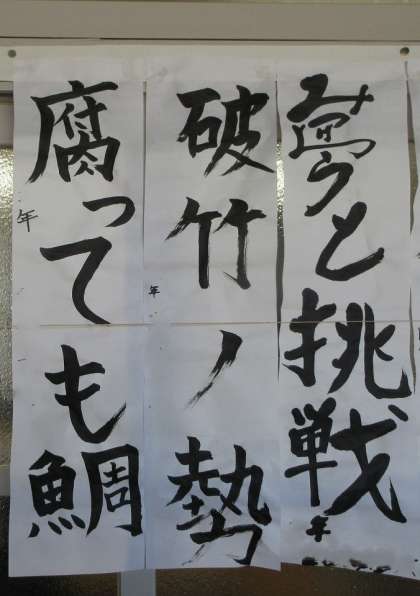 夢と挑戦
年
破竹ノ勢
年
腐っても鯛
年